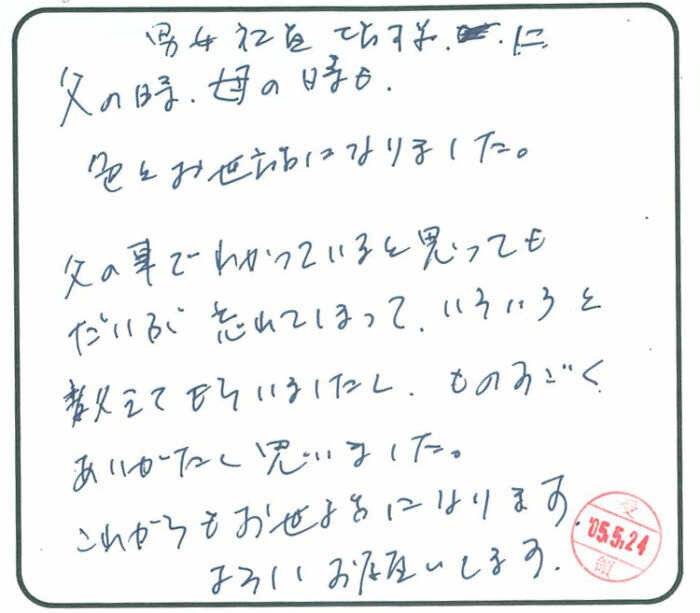 男女社員 ですます. に
父の時、母の時も、
色々お世話になりました。
父の事でわかっていると思っても
だいぶ忘れてしまって、いろいろと
教えてもらいましたし、ものすごく
ありがたく思いました。
これからもお世話になります。
よろしくお願いします。
受
'05.5.24
領